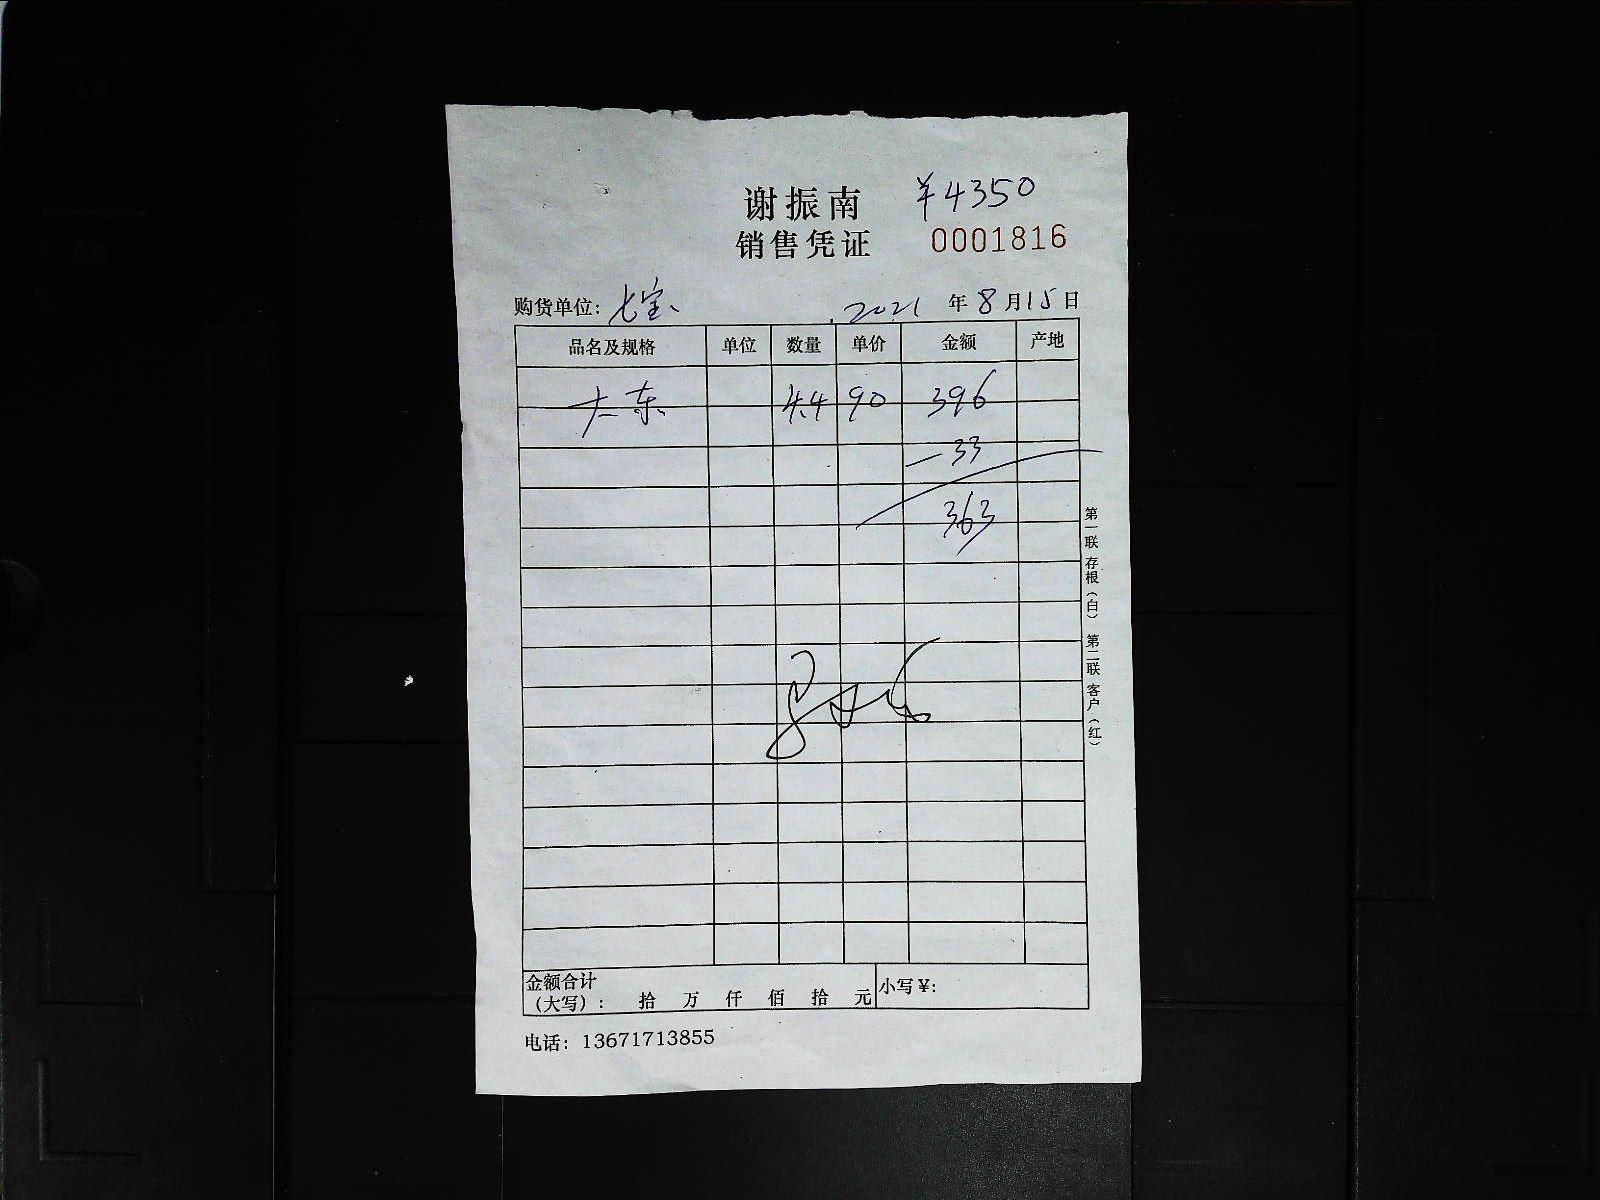 谢振南
¥4350
销售凭证
0001816
购货单位: 七宝 2021 年 8 月 15 日
品名及规格 单位 数量 单价 金额 产地
大东 4.4 90 396
-33
363
第一联 存根(白) 第二联 客户(红)
金额合计 小写¥:
(大写): 拾 万 仟 佰 拾 元
电话: 13671713855